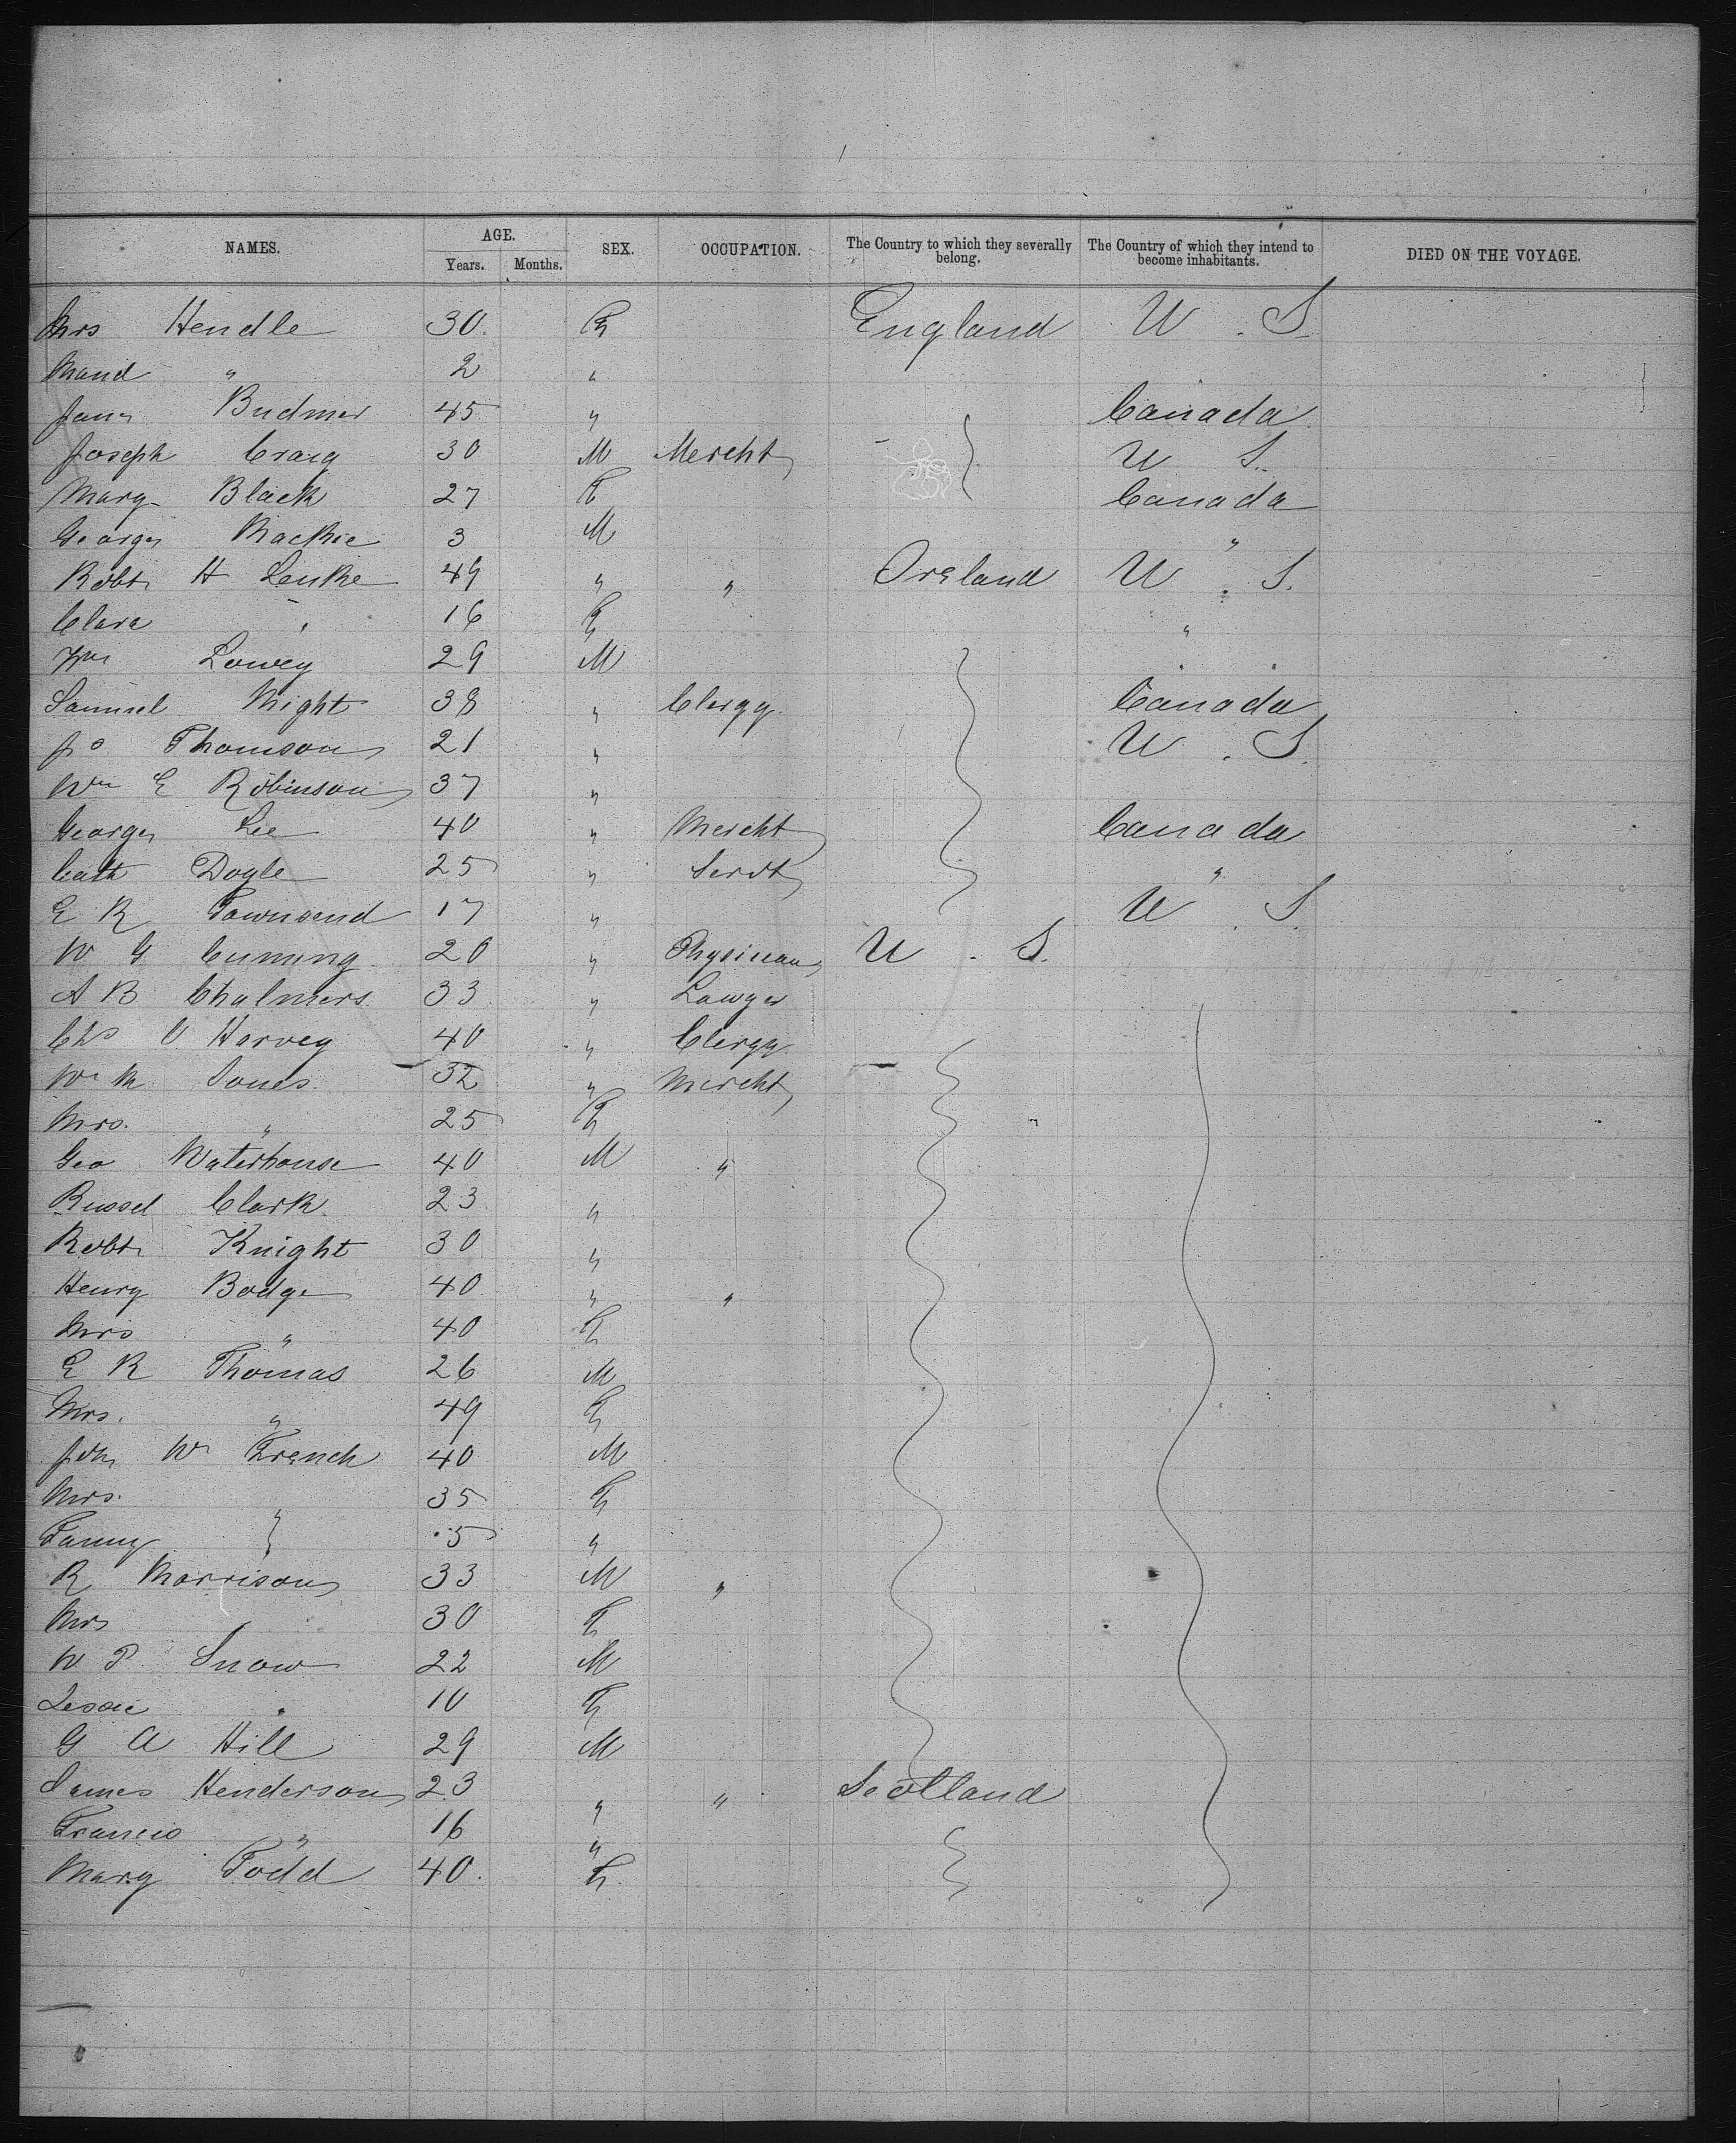 NAMES. AGE. SEX. OCCUPATION. The Country to which they severally belong. The Country of which they intend to become inhabitants. DIED ON THE VOYAGE.
Years. Months.
Mrs Hendle 30. F England U. S.
Maud " 2 "
Jane Budmer 45 " Canada
Joseph Craig 30 M Mercht U S.
Mary Black 27 F Canada
George Mackie 3 M "
Robt H Lenke 49 " " Ireland U. S.
Clara " 16 F "
Wm Lowey 29 M
Samuel Might 38 " Clergy. Canada
Jo Thomson 21 " U. S.
Wm E Robinson 37 "
George Lee 40 " Mercht Canada
Cath Doyle 25 " Servt "
E R Townsend 17 " U. S.
W G Cuming 20 " Physician U. S.
A B Chalmers 33 " Lawyer
Chs O Harvey 40 " Clergy
Wm Jones. 32 " Mercht
Mrs. " 25 F
Geo Waterhouse 40 M "
Russel Clark. 23 "
Robt Knight 30 "
Henry Bodge 40 " "
Mrs " 40 F
E R Thomas 26 M
Mrs. " 49 F
Jon W French 40 M
Mrs. 35 F
Fanny 5 "
R Morrison 33 M "
Mrs 30 F
W. P Snow 22 M
Lessie " 10 F
G A Hill 29 M
James Henderson 23 " " Scotland
Francis " 16 "
Mary Todd 40. F.